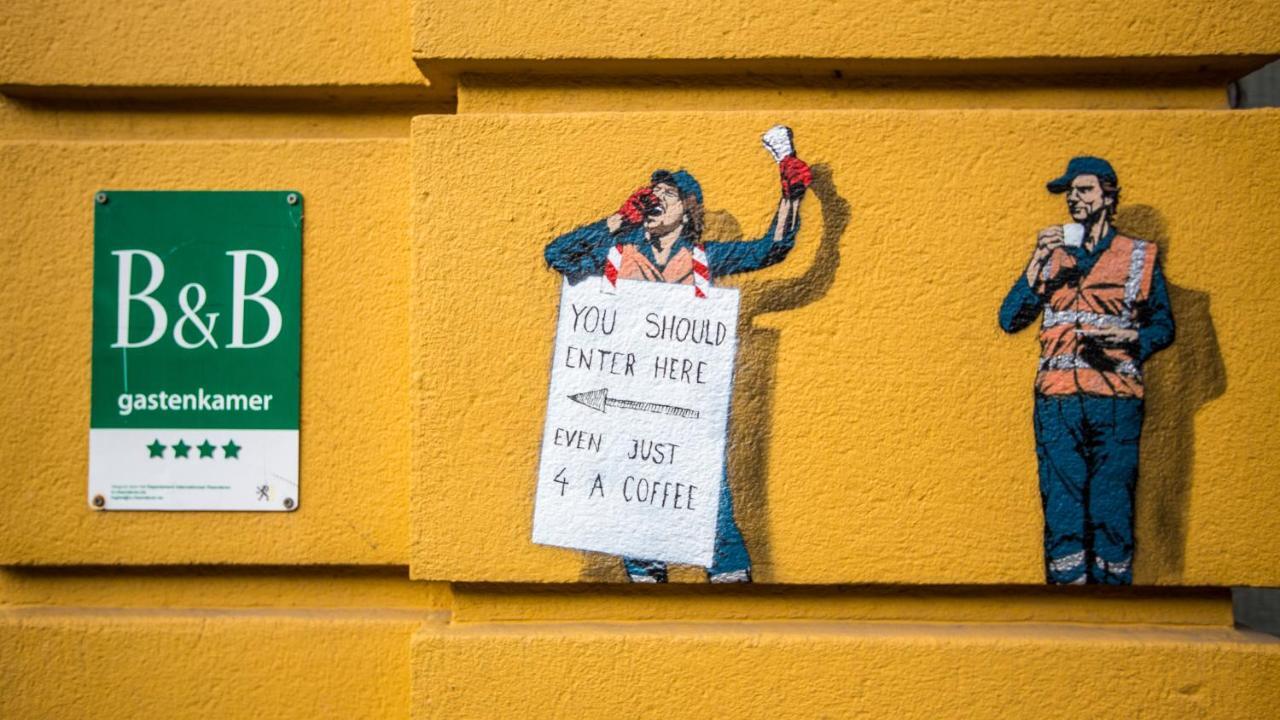 B&B
gastenkamer
YOU SHOULD
ENTER HERE
EVEN JUST
4 A COFFEE